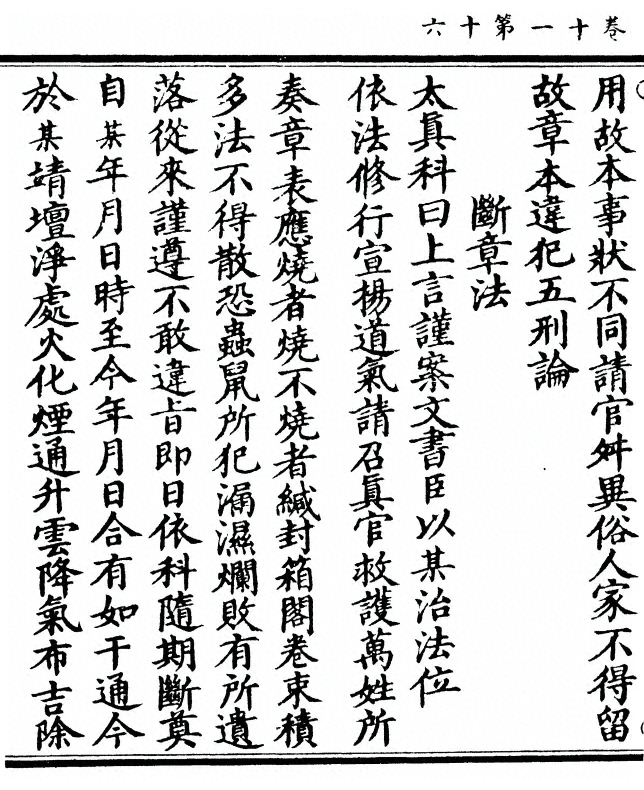 卷十一第十六
用故本事狀不同請官舛異俗人家不得留
故章本違犯五刑論
斷章法
太真科曰上言謹案文書臣以某治法位
依法修行宣揚道氣請召真官救護萬姓所
奏章表應燒者燒不燒者緘封箱閣卷束積
多法不得散恐蟲鼠所犯漏濕爛敗有所遺
落從來謹遵不敢違旨即日依科隨期斷奠
自某年月日時至今年月日合有如干通今
於某靖壇淨處火化煙通升雲降氣布吉除